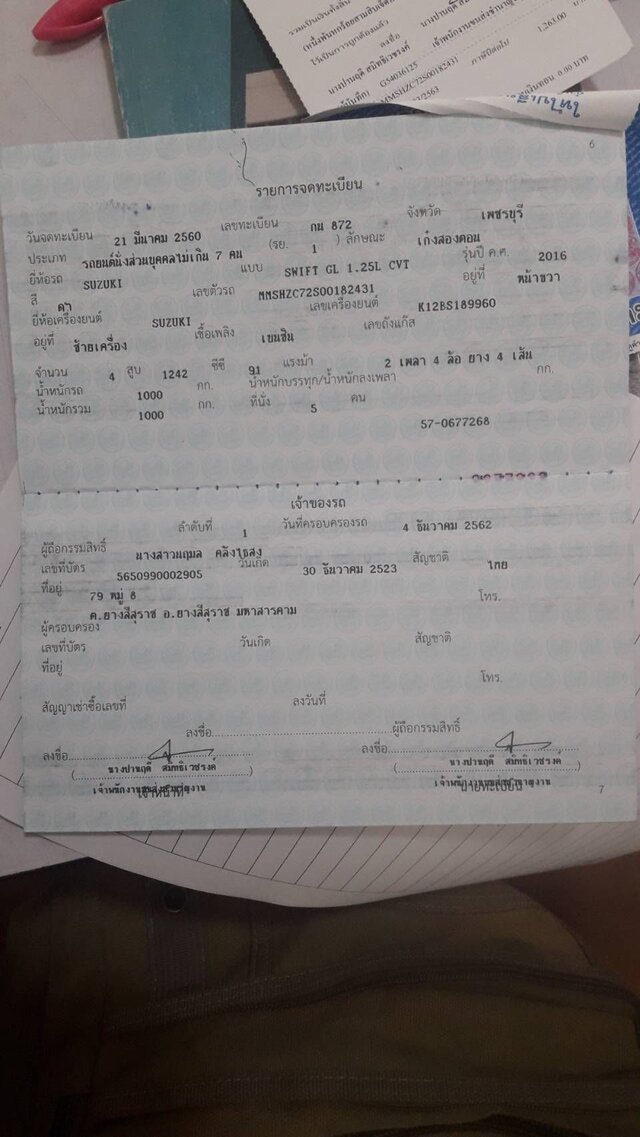 รวมเป็นเงินทั้งสิ้น
ได้เป็นการถูกต้องแล้ว
ลงชื่อ
เจ้าพนักงานขนส่งชำนาญ
1,263.00
G54036125
MMSHZC72S00182431
ภาษีปีต่อไป
/2563
เงินทอน 0.00 บาท
6
รายการจดทะเบียน
วันจดทะเบียน 21 มีนาคม 2560 เลขทะเบียน กน 872 จังหวัด เพชรบุรี
ประเภท รถยนต์นั่งส่วนบุคคลไม่เกิน 7 คน (รย. 1 ) ลักษณะ เก๋งสองตอน
ยี่ห้อรถ SUZUKI แบบ SWIFT GL 1.25L CVT รุ่นปี ค.ศ. 2016
สี ดำ เลขตัวรถ MMSHZC72S00182431 อยู่ที่ หน้าขวา
ยี่ห้อเครื่องยนต์ SUZUKI เลขเครื่องยนต์ K12BS189960
อยู่ที่ ซ้ายเครื่อง เชื้อเพลิง เบนซิน เลขถังแก๊ส
จำนวน 4 สูบ 1242 ซีซี 91 แรงม้า 2 เพลา 4 ล้อ ยาง 4 เส้น
น้ำหนักรถ 1000 กก. น้ำหนักบรรทุก/น้ำหนักลงเพลา กก.
น้ำหนักรวม 1000 กก. ที่นั่ง 5 คน
57-0677268
เจ้าของรถ
ลำดับที่ 1 วันที่ครอบครองรถ 4 ธันวาคม 2562
ผู้ถือกรรมสิทธิ์ นางสาวนฤมล
เลขที่บัตร 5650990002905 วันเกิด 30 ธันวาคม 2523 สัญชาติ ไทย
ที่อยู่ 79 หมู่ 8 โทร.
ต.ยางสีสุราช อ.ยางสีสุราช มหาสารคาม
ผู้ครอบครอง
เลขที่บัตร วันเกิด สัญชาติ
ที่อยู่
โทร.
สัญญาเช่าซื้อเลขที่ ลงวันที่
ลงชื่อ ผู้ถือกรรมสิทธิ์
ลงชื่อ ลงชื่อ
นางปานฤดี สมิทธิเวชรงค์ นางปานฤดี สมิทธิเวชรงค์
7